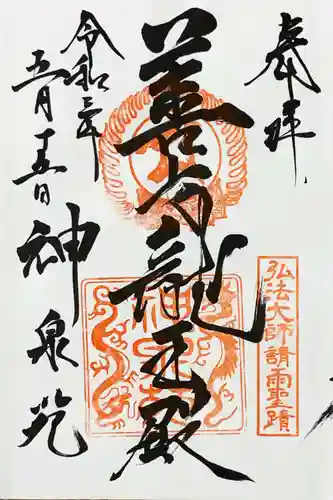 奉拝
弘法大師請雨聖蹟
善女龍王殿
令和三年
五月十五日
神泉苑